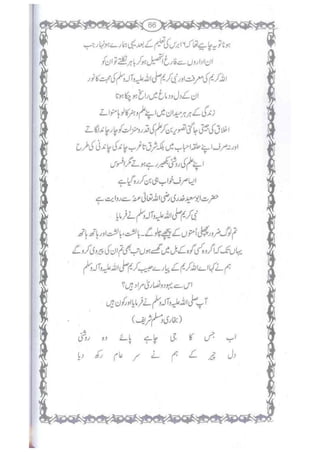 66
ہونا تو یہ چاہیے تھا کہ ۱۶ برس کی تعلیم کے بعد یہی ہمارے ہونہار جب
ان اداروں سے فارغ التحصیل ہو کر باہر نکلتے تو ان کو
اللہ کریم کی معرفت اور نبی کریم صلی اللہ علیہ وآلہ وسلم کی محبت کا نور
ان کے دل و دماغ میں راسخ ہو چکا ہوتا
زندگی کے ہر ہر میدان میں اپنے علم و ہنر کا لوہا منواتے
اخلاق کی جیتی جاگتی تصویر بن کر علم کی قدر و منزلت کو چار چاند لگاتے
اور نہ صرف اپنے حلقہ احباب میں بلکہ شرق تا غرب چاندنی کی طرح
اپنے علم کی روشنی بکھیر رہے ہوتے مگر افسوس
ایسا صرف خواب ہی بن کر رہ گیا ہے
حضرت ابو سعید خدری رضی اللہ تعالیٰ عنہ سے روایت ہے
نبی کریم صلی اللہ علیہ وآلہ وسلم نے فرمایا
تم لوگ ضرور پچھلی اُمتوں کے پیچھے چلو گے۔ بالشت بالشت اور ہاتھ ہاتھ
یہاں تک کہ اگر وہ کسی گوہ کے بل میں گھسے ہوں تب بھی تم ان کی پیروی کرو گے
ہم نے کہا اے اللہ کریم کے پیارے حبیب کریم صلی اللہ علیہ وآلہ وسلم
اس سے یہود و نصاریٰ مراد ہیں؟
آپ صلی اللہ علیہ وآلہ وسلم نے فرمایا اور کون ہیں
(بخاری و مسلم شریف)
اب جس کا جی چاہے پائے وہ روشنی
دل چیر کے ہم نے سرِ عام رکھ دیا